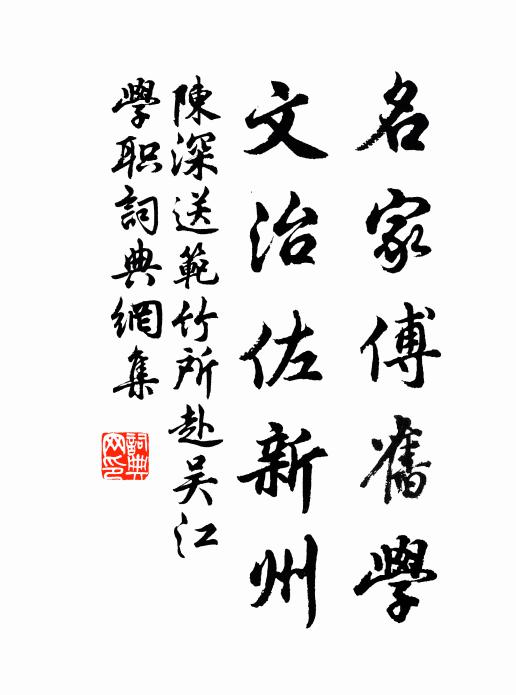 名家傅舊學
文治佐新州
陳深送範竹所赴吴江
學职詞典網集
詞典网印